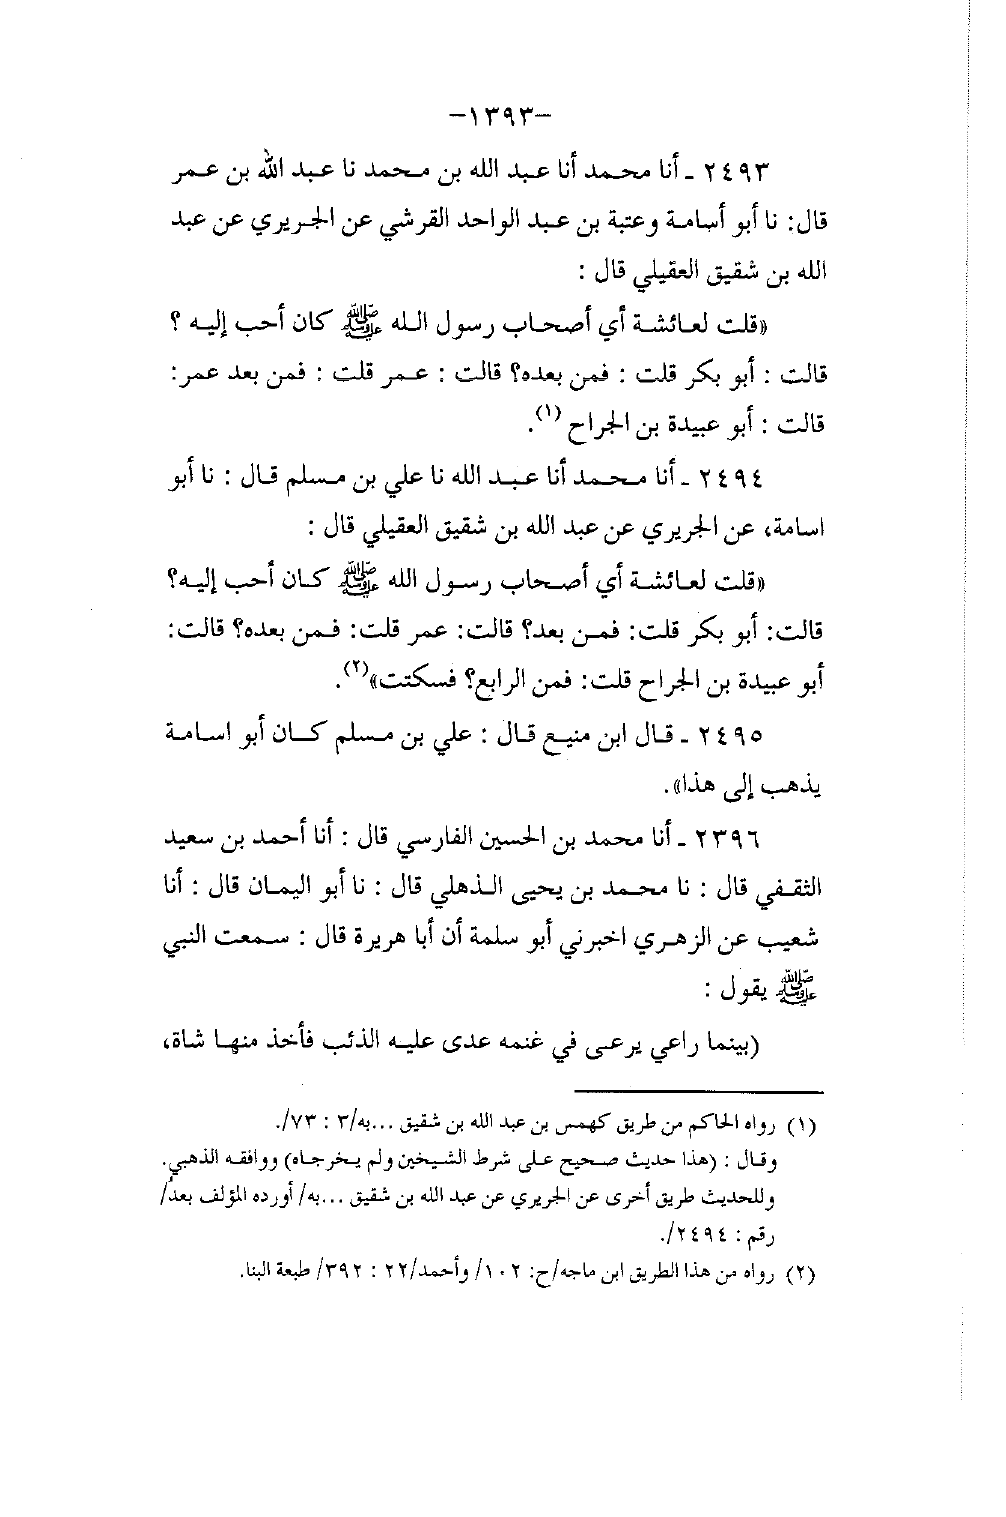 -١٣٩٣-
٢٤٩٣ ـ أنا محمد أنا عبد الله بن محمد نا عبد الله بن عمر
قال: نا أبو أسامة وعتبة بن عبد الواحد القرشي عن الجريري عن عبد
الله بن شقيق العقيلي قال :
«قلت لعائشة أي أصحاب رسول الله ﷺ كان أحب إليه ؟
قالت : أبو بكر قلت : فمن بعده؟ قالت : عمر قلت : فمن بعد عمر:
قالت : أبو عبيدة بن الجراح (١).
٢٤٩٤ ـ أنا محمد أنا عبد الله نا علي بن مسلم قال : نا أبو
اسامة، عن الجريري عن عبد الله بن شقيق العقيلي قال :
«قلت لعائشة أي أصحاب رسول الله ﷺ كان أحب إليه؟
قالت: أبو بكر قلت: فمن بعد؟ قالت: عمر قلت: فمن بعده؟ قالت:
أبو عبيدة بن الجراح قلت: فمن الرابع؟ فسكتت»(٢).
٢٤٩٥ ـ قال ابن منيع قال : علي بن مسلم كان أبو اسامة
يذهب إلى هذا».
٢٣٩٦ ـ أنا محمد بن الحسين الفارسي قال : أنا أحمد بن سعيد
الثقفي قال : نا محمد بن يحيى الذهلي قال : نا أبو اليمان قال : أنا
شعيب عن الزهري اخبرني أبو سلمة أن أبا هريرة قال : سمعت النبي
ﷺ يقول :
(بينما راعي يرعى في غنمه عدى عليه الذئب فأخذ منها شاة،
(١) رواه الحاكم من طريق كهمس بن عبد الله بن شقيق ...به/٣ : ٧٣/.
وقال : (هذا حديث صحيح على شرط الشيخين ولم يخرجاه) ووافقه الذهبي.
وللحديث طريق أخرى عن الجريري عن عبد الله بن شقيق ...به/ أورده المؤلف بعدُ/
رقم : ٢٤٩٤/.
(٢) رواه من هذا الطريق ابن ماجه/ح: ١٠٢/ وأحمد/٢٢ : ٣٩٢/ طبعة البنا.